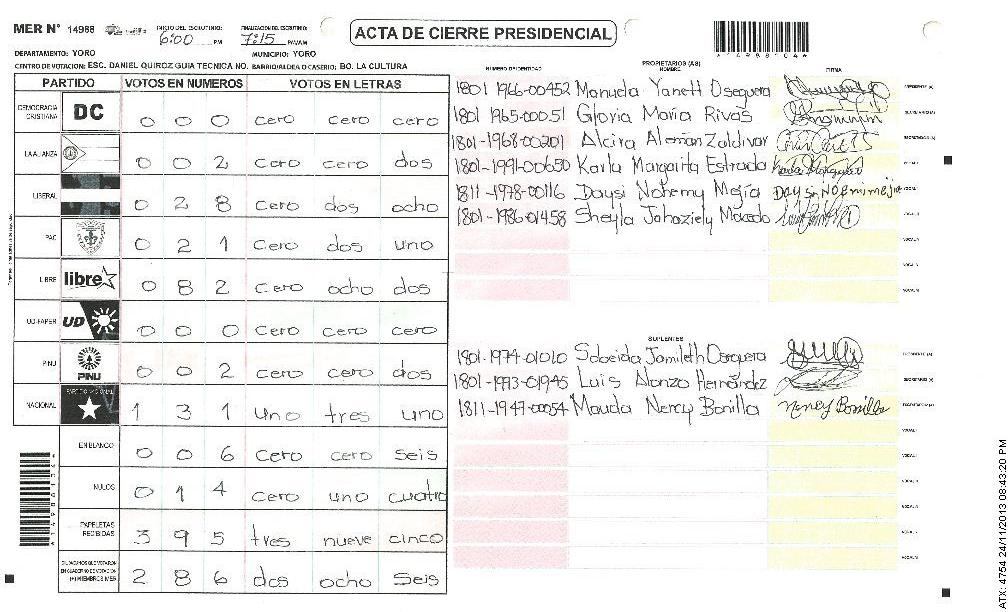 MER Nº 14988 INICIO DEL ESCRUTINIO: 6:00 PM FINALIZACION DEL ESCRUTINIO: 7:15 PM/AM ACTA DE CIERRE PRESIDENCIAL
DEPARTAMENTO: YORO MUNICIPIO: YORO
CENTRO DE VOTACION: ESC. DANIEL QUIROZ GUIA TECNICA NO. BARRIO/ALDEA O CASERIO: BO. LA CULTURA
PARTIDO VOTOS EN NUMEROS VOTOS EN LETRAS
DEMOCRACIA CRISTIANA DC 0 0 0 cero cero cero
LA ALIANZA 0 0 2 cero cero dos
LIBERAL 0 2 8 cero dos ocho
PAC 0 2 1 cero dos uno
LIBRE libre 0 8 2 cero ocho dos
UD-FAPER UD 0 0 0 cero cero cero
PINU PINU 0 0 2 cero cero dos
NACIONAL PARTIDO NACIONAL 1 3 1 uno tres uno
EN BLANCO 0 0 6 cero cero seis
NULOS 0 1 4 cero uno cuatro
PAPELETAS RECIBIDAS 3 9 5 tres nueve cinco
CIUDADANOS QUE VOTARON EN CUADERNO DE VOTACION (+) MIEMBROS MER 2 8 6 dos ocho seis
PROPIETARIOS (AS)
NUMERO DE IDENTIDAD NOMBRE FIRMA
1801 1966-00452 Manuela Yanett Oseguera PRESIDENTE (A)
1801 1965-00051 Gloria María Rivas SECRETARIO (A)
1801-1968-00201 Alcira Alemán Zaldivar ESCRUTADOR (A)
1801-1991-00650 Karla Margarita Estrada VOCAL I
1811-1978-00116 Daysi Nohemy Mejía Daysi Noemi mejia VOCAL
1801-1986-01458 Sheyla Jahaziely Macedo VOCAL
VOCAL
VOCAL
VOCAL
SUPLENTES
1801-1974-01010 Sobeida Jamileth Oseguera PRESIDENTE (A)
1801-1973-01945 Luis Alonzo Hernández SECRETARIO (A)
1811-1947-00054 Mauda Nercy Bonilla Nercy Bonilla ESCRUTADOR (A)
VOCAL
VOCAL
VOCAL
VOCAL
VOCAL
VOCAL
ATX: 4754 24/11/2013 08:43:20 PM